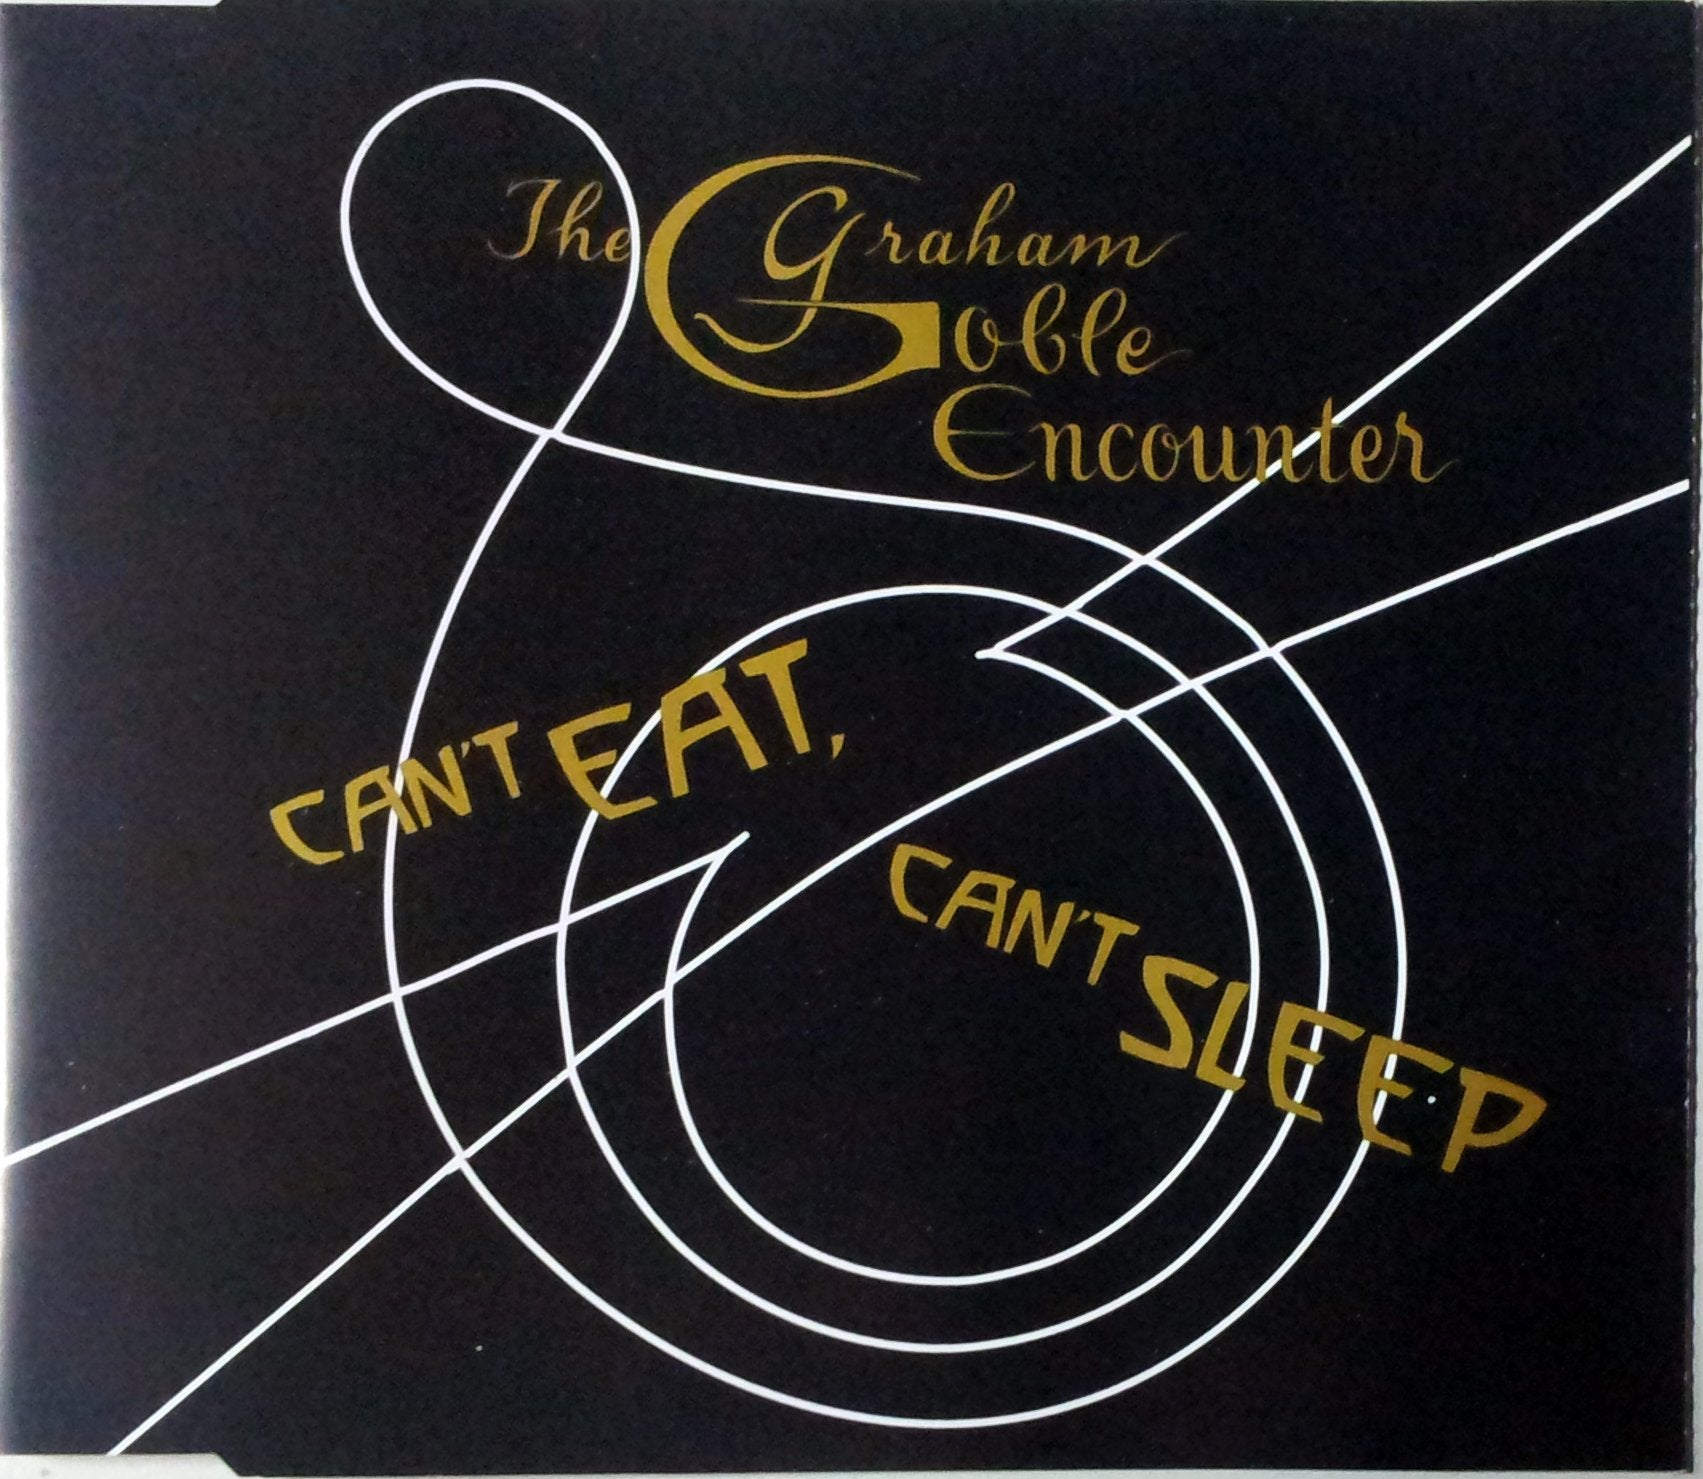 The Graham
Goble
Encounter
CAN'T EAT,
CAN'T SLEEP